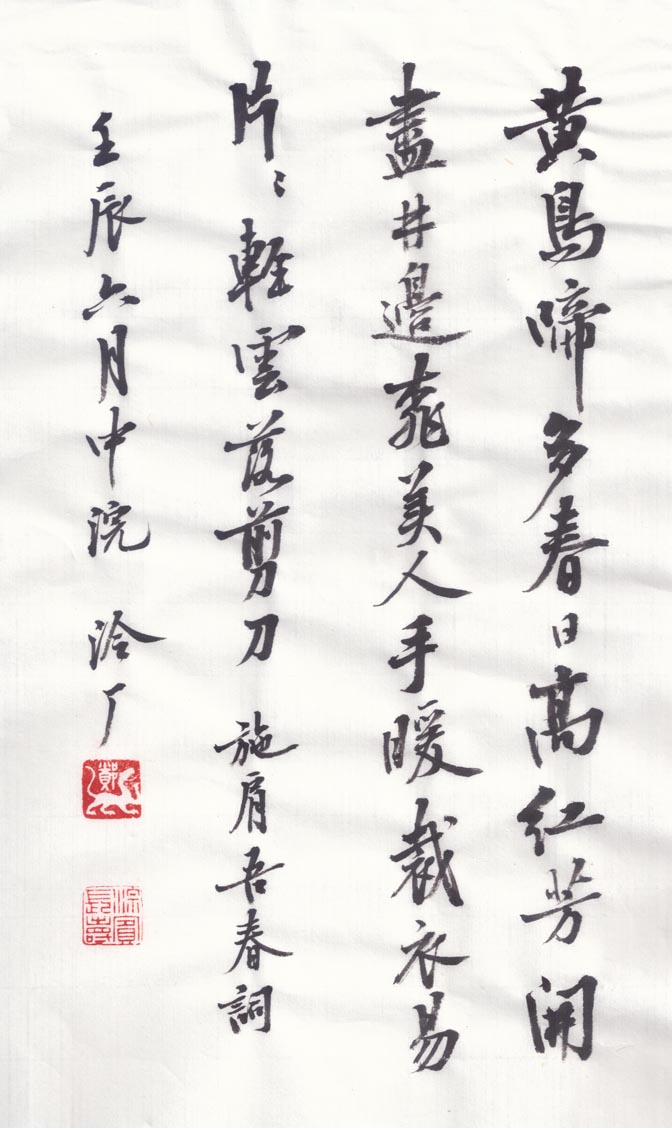 黃鳥啼多春日高紅芳開
盡井邊桃美人手暖裁衣易
片〻輕雲落剪刀 施肩吾春詞
壬辰六月中浣 洽厂